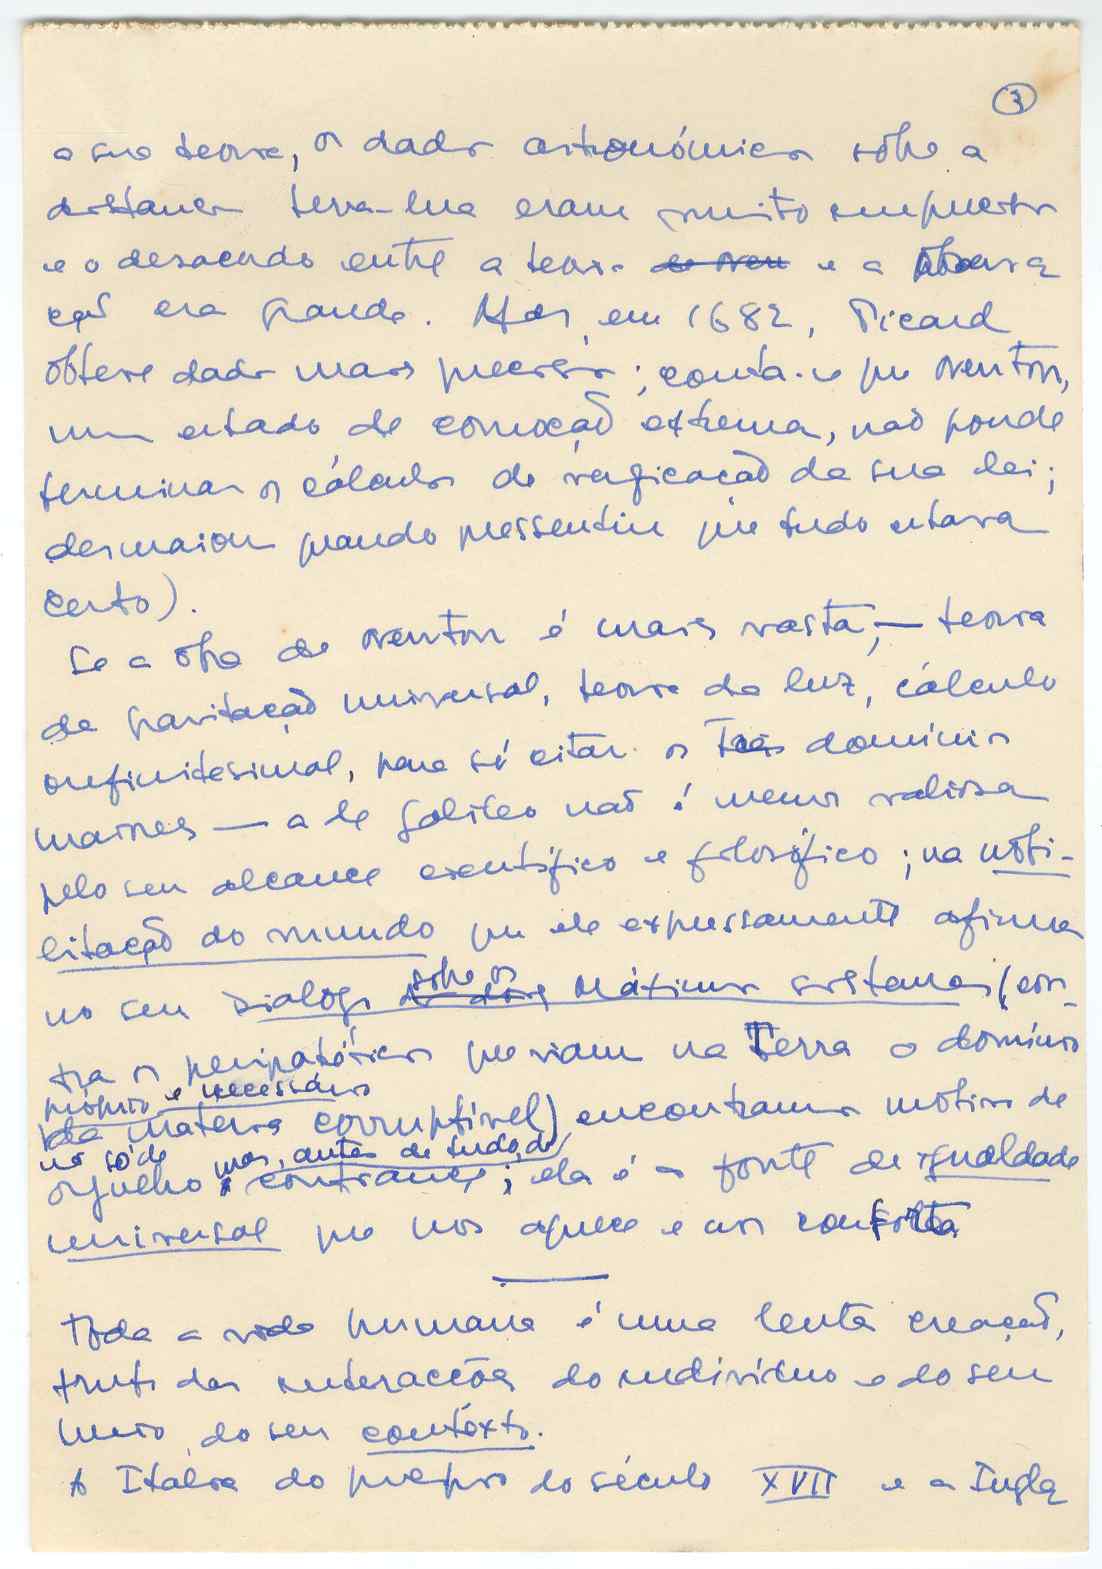 3
a sua teoria, os dados astronómicos sôbre a
distancia terra-lua eram muito imprecisos
e o desacordo entre a teoria e a observa
ção era grande. Mas, em 1682, Picard
obteve dados mais precisos; conta-se que Newton,
num estado de comoção extrema, não poude
terminar os cálculos de verificação da sua lei;
desmaiou quando pressentiu que tudo estava
certo).
Se a obra de Newton é mais vasta, — teoria
da gravitação universal, teoria da luz, cálculo
infinitesimal, para só citar os três domínios
maiores — a de Galileo não é menos valiosa
pelo seu alcance científico e filosófico; na nobi-
litação do mundo que ele expressamente afirma
no seu Dialogo sobre os Máximos sistemas (con-
tra os peripatéticos que viam na Terra o domínio
próprio e necessário
da materia corruptível) encontramos motivo de
não só de mas, antes de tudo, de
orgulho confiança; ela é a fonte de igualdade
universal que nos aquece e nos conforta
Toda a vida humana é uma lenta creação,
fruto das interacções do indivíduo e do seu
meio, do seu contexto.
A Italia do principio do século XVII e a Ingla